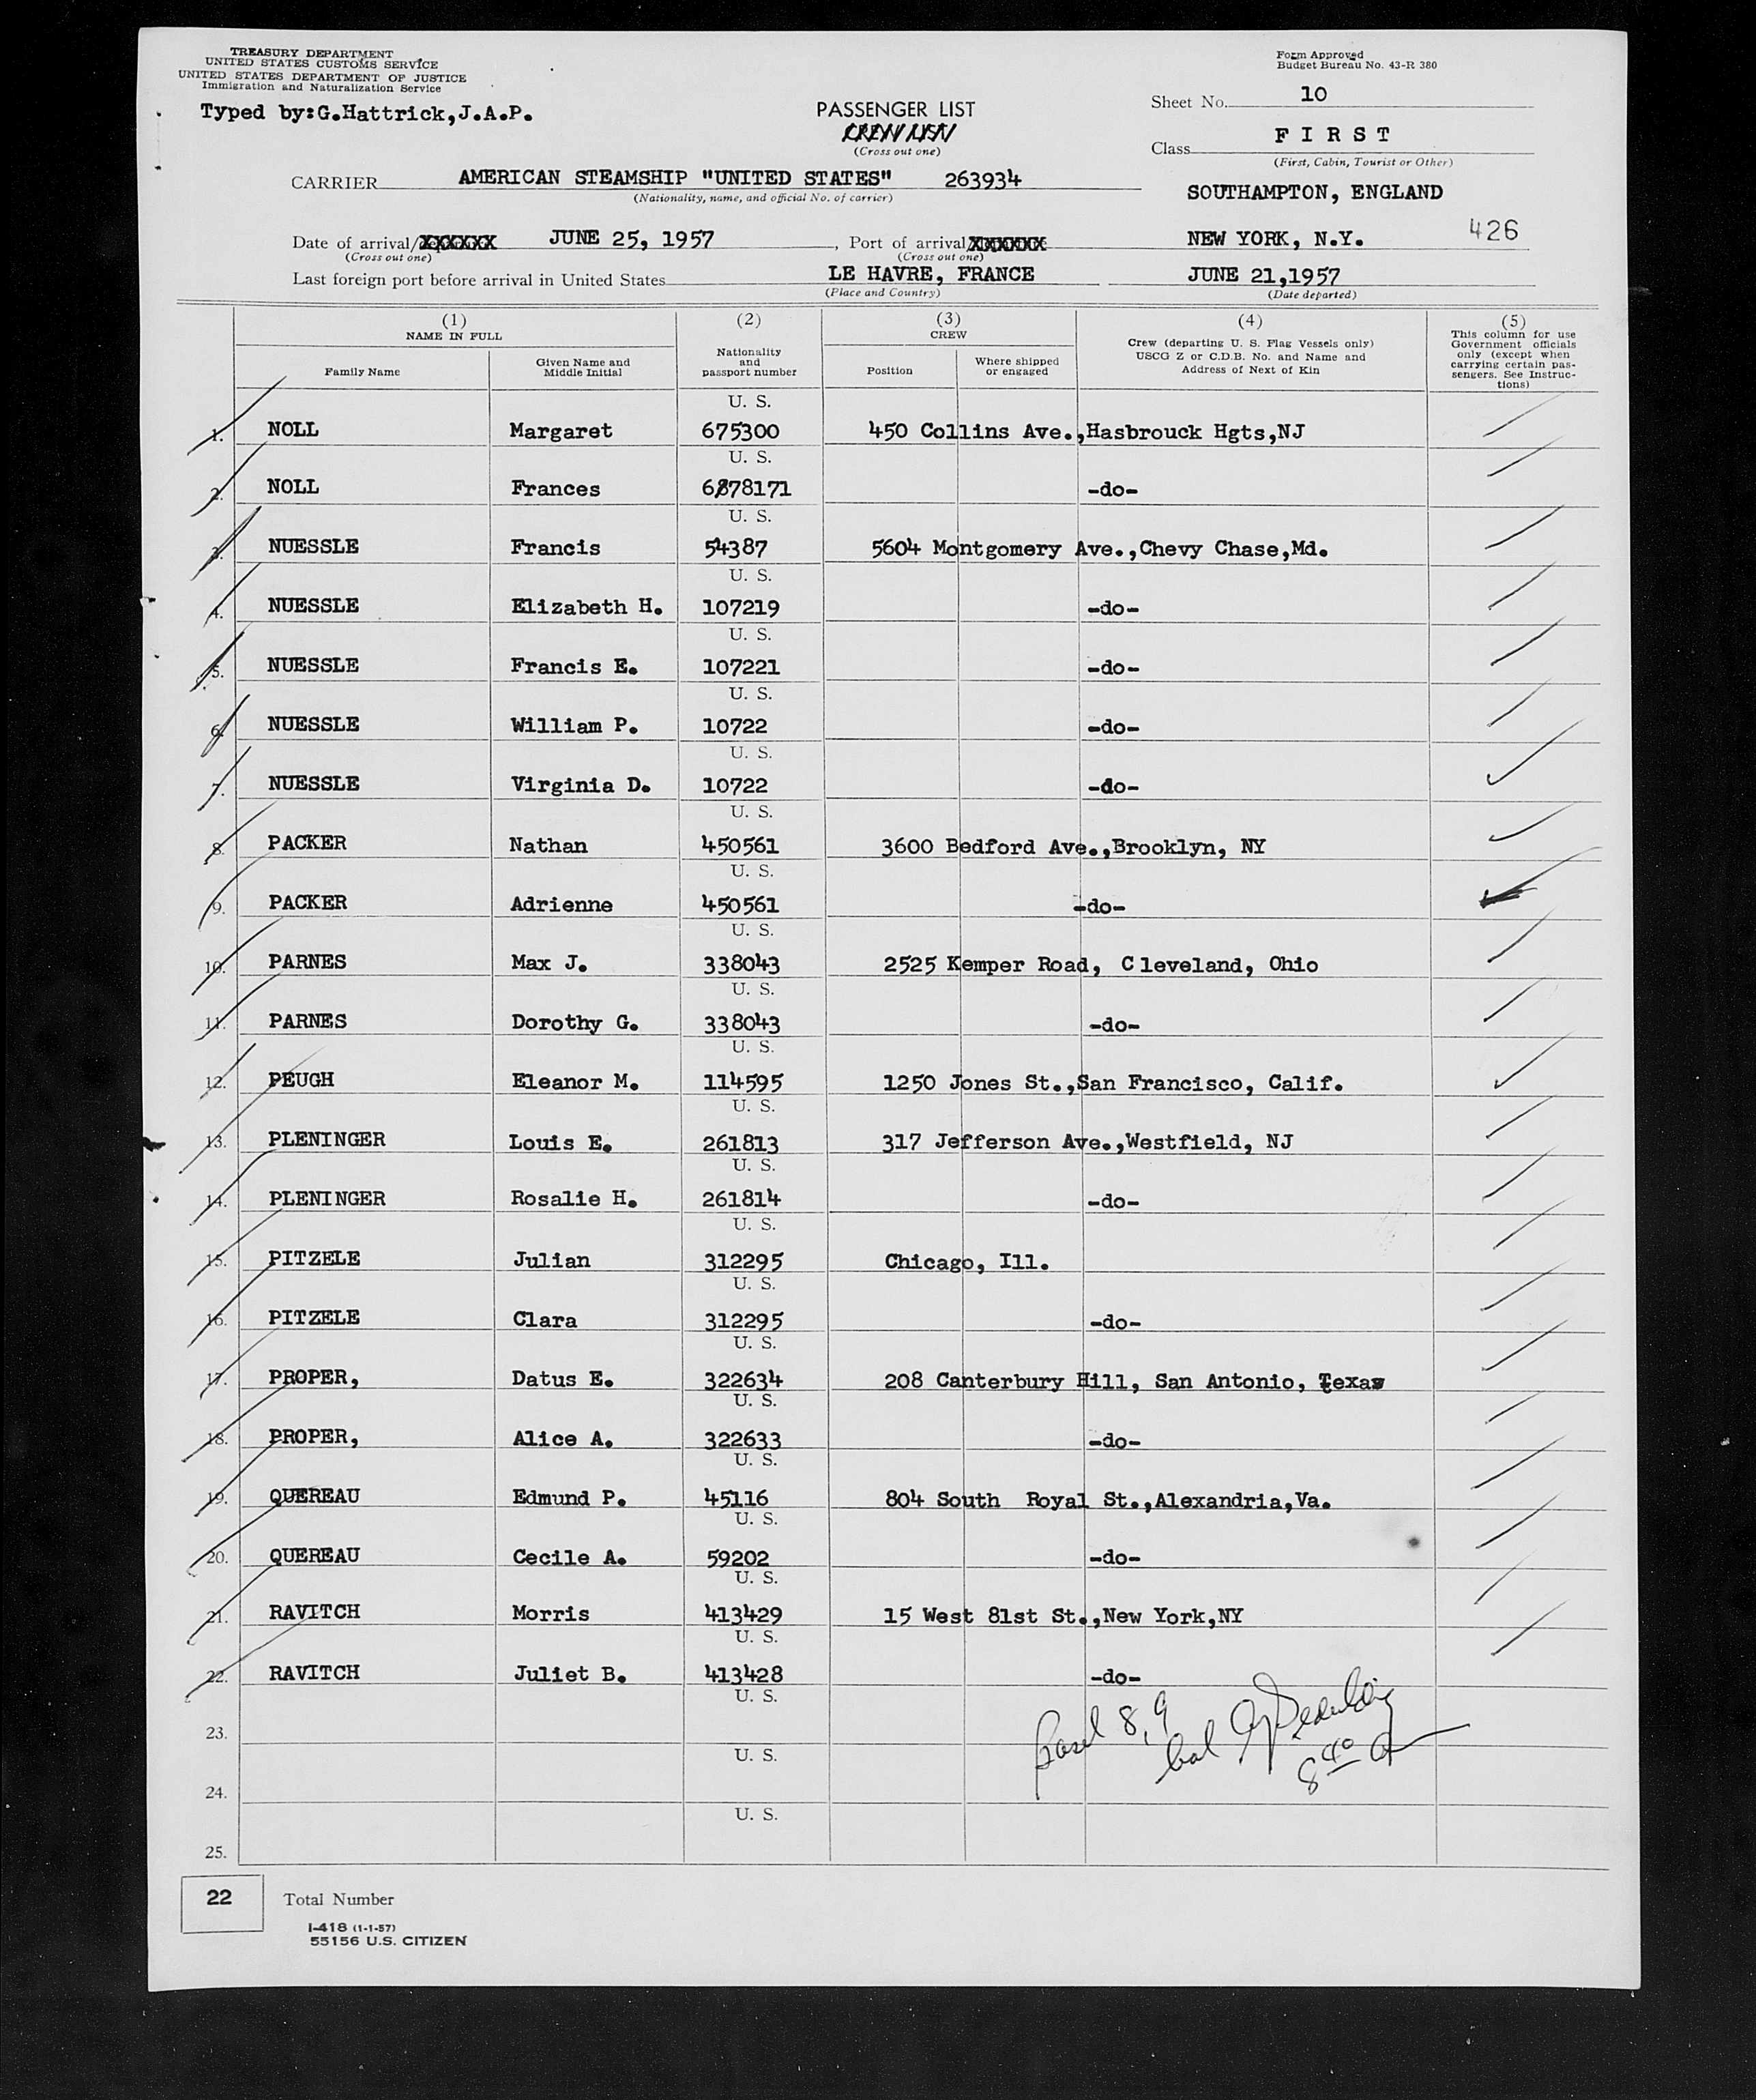 TREASURY DEPARTMENT
UNITED STATES CUSTOMS SERVICE
UNITED STATES DEPARTMENT OF JUSTICE
Immigration and Naturalization Service
Typed by:G.Hattrick,J.A.P.
Form Approved
Budget Bureau No. 43-R 380
PASSENGER LIST
CREW LIST
(Cross out one)
Sheet No. 10
Class FIRST
(First, Cabin, Tourist or Other)
CARRIER AMERICAN STEAMSHIP "UNITED STATES" 263934
(Nationality, name, and official No. of carrier)
SOUTHAMPTON, ENGLAND
Date of arrival/XXXXXX JUNE 25, 1957, Port of arrival XXXXXX NEW YORK, N.Y. 426
(Cross out one) (Cross out one)
Last foreign port before arrival in United States LE HAVRE, FRANCE JUNE 21,1957
(Place and Country) (Date departed)
(1) NAME IN FULL
Family Name
Given Name and Middle Initial
(2) Nationality and passport number
(3) CREW
Position
Where shipped or engaged
(4) Crew (departing U. S. Flag Vessels only) USCG Z or C.D.B. No. and Name and Address of Next of Kin
(5) This column for use Government officials only (except when carrying certain passengers. See Instructions)
U. S.
1. NOLL Margaret 675300 450 Collins Ave.,Hasbrouck Hgts,NJ
U. S.
2. NOLL Frances 6878171 -do-
U. S.
3. NUESSLE Francis 54387 5604 Montgomery Ave.,Chevy Chase,Md.
U. S.
4. NUESSLE Elizabeth H. 107219 -do-
U. S.
5. NUESSLE Francis E. 107221 -do-
U. S.
6. NUESSLE William P. 10722 -do-
U. S.
7. NUESSLE Virginia D. 10722 -do-
U. S.
8. PACKER Nathan 450561 3600 Bedford Ave.,Brooklyn, NY
U. S.
9. PACKER Adrienne 450561 -do-
U. S.
10. PARNES Max J. 338043 2525 Kemper Road, Cleveland, Ohio
U. S.
11. PARNES Dorothy G. 338043 -do-
U. S.
12. PEUGH Eleanor M. 114595 1250 Jones St.,San Francisco, Calif.
U. S.
13. PLENINGER Louis E. 261813 317 Jefferson Ave.,Westfield, NJ
U. S.
14. PLENINGER Rosalie H. 261814 -do-
U. S.
15. PITZELE Julian 312295 Chicago, Ill.
U. S.
16. PITZELE Clara 312295 -do-
U. S.
17. PROPER, Datus E. 322634 208 Canterbury Hill, San Antonio, Texas
U. S.
18. PROPER, Alice A. 322633 -do-
U. S.
19. QUEREAU Edmund P. 45116 804 South Royal St.,Alexandria,Va.
U. S.
20. QUEREAU Cecile A. 59202 -do-
U. S.
21. RAVITCH Morris 413429 15 West 81st St.,New York,NY
U. S.
22. RAVITCH Juliet B. 413428 -do-
U. S.
23.
U. S.
24.
U. S.
25.
8, 9
bal
8 40
22 Total Number
I-418 (1-1-57)
55156 U.S. CITIZEN